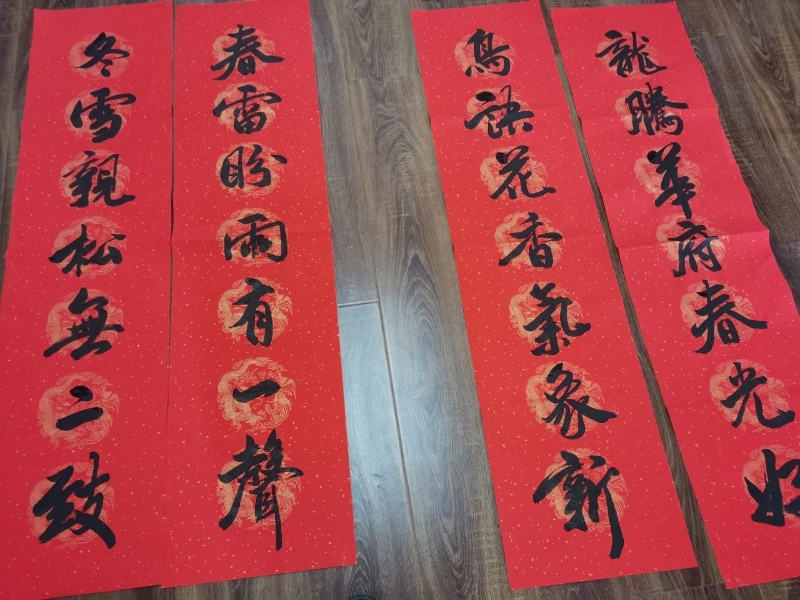 龍騰華府春光好
鳥語花香氣象新
春雷盼雨有一聲
冬雪親松無二致